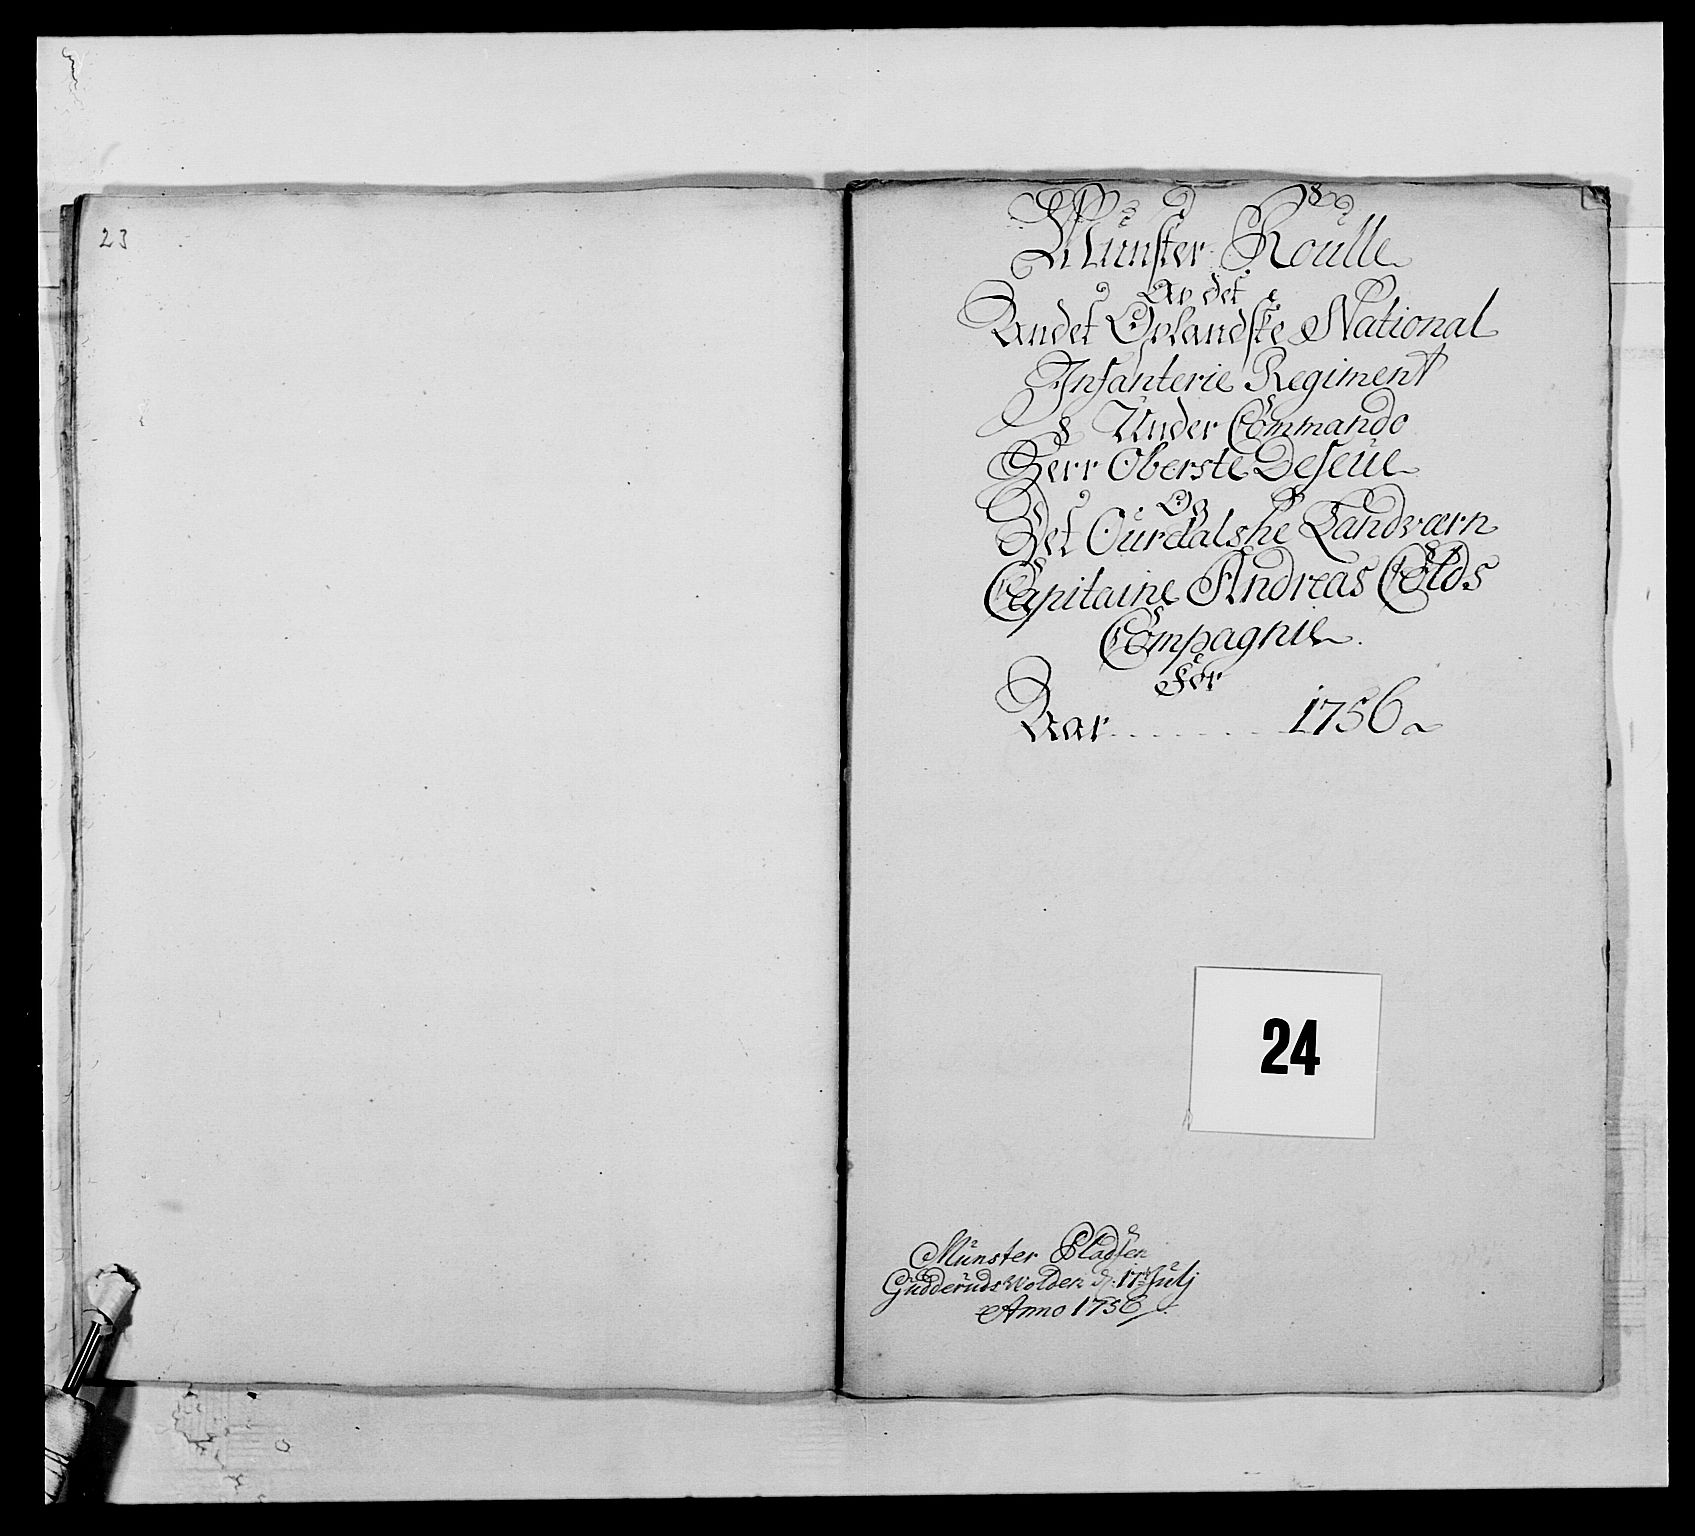 23
Münster Roülle
Av det
Andet Oplandske National
Infanterie Regiment
Under Commando
Herr Oberste Deseüe
Og
Det Oürdalske Landværn
Capitaine Andreas Colds
Compagnie.
For
Aar........1756
24
Münster Pladsen
Gudderuds Wolden d: 17de Julj
Anno 1756